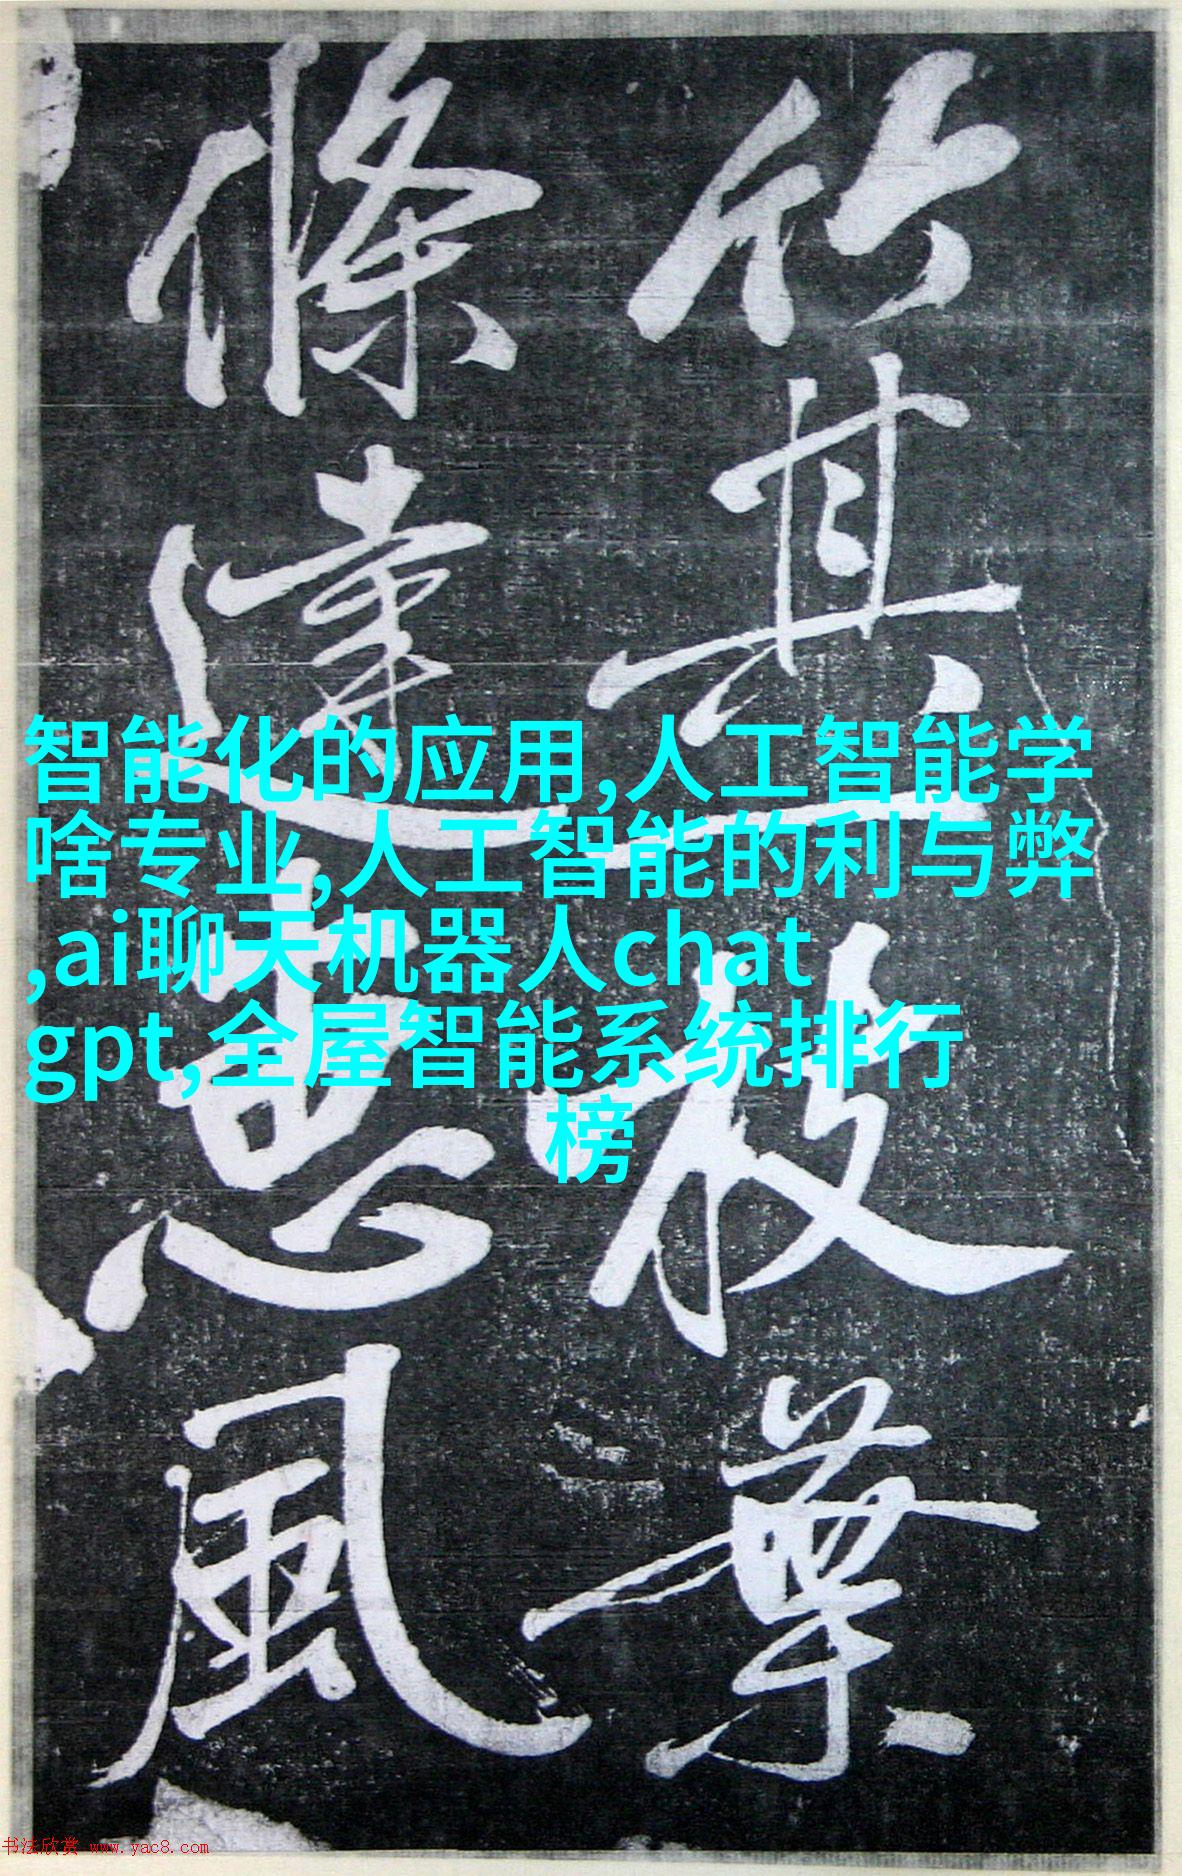 竹其枝葉
條達惠風
智能化的应用,人工智能学
啥专业,人工智能的利与弊
,ai聊天机器人chat
gpt,全屋智能系统排行
榜
书法欣赏 www.yac8.com